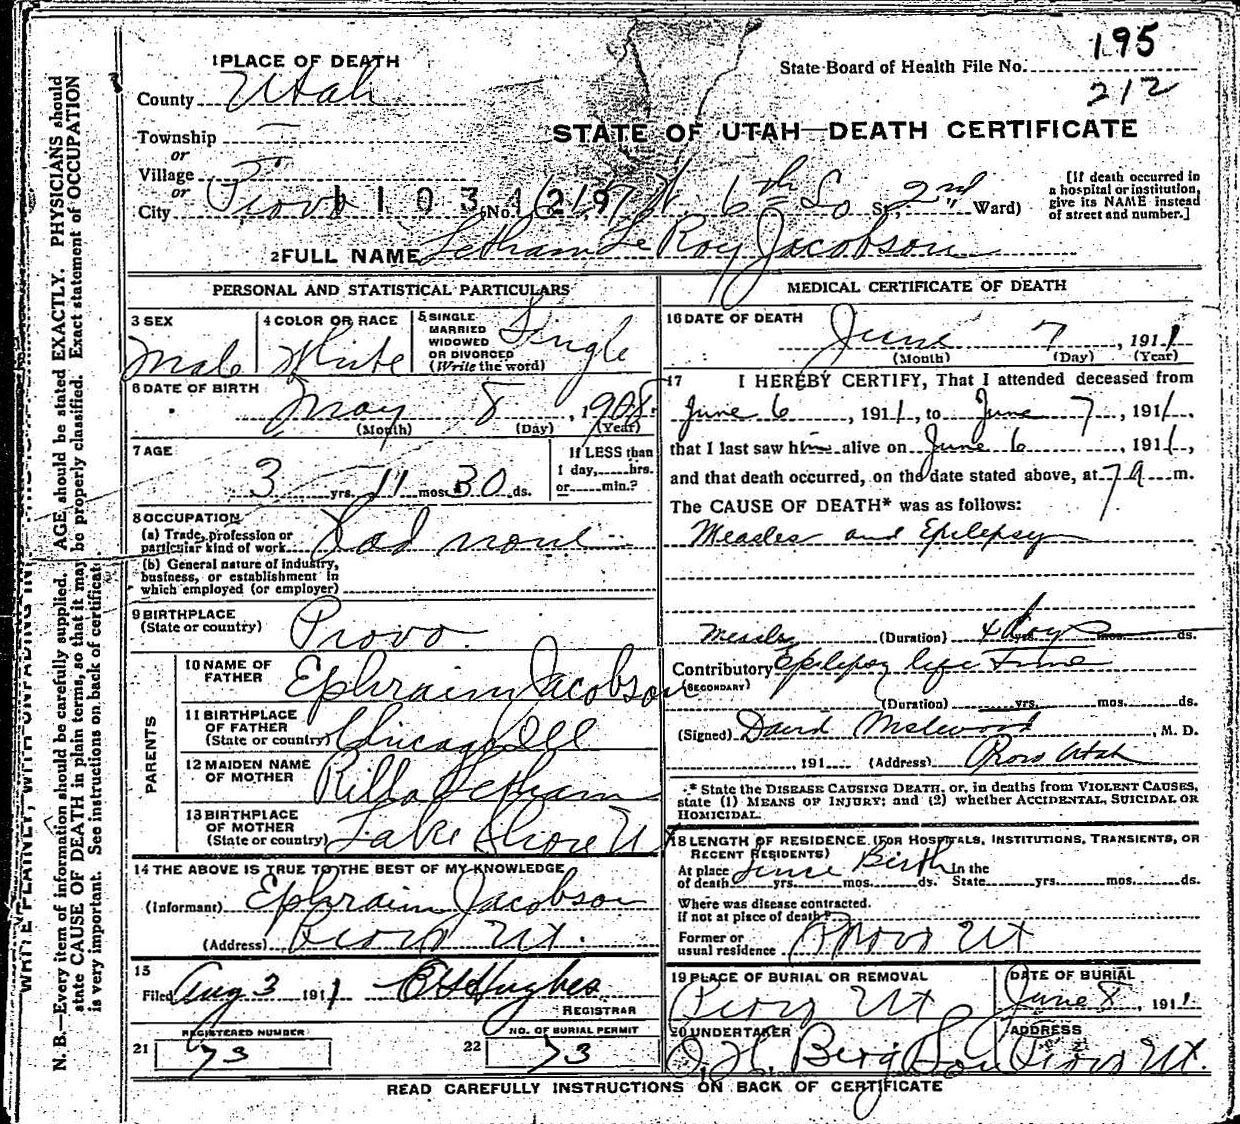 195
State Board of Health File No.
212
1 PLACE OF DEATH
County Utah
Township —
or
Village
or
City Provo
1 1 0 3
No. 6th So St., 2nd Ward)
[If death occurred in a hospital or institution, give its NAME instead of street and number.]
STATE OF UTAH—DEATH CERTIFICATE
2 FULL NAME Letham Le Roy Jacobson
PERSONAL AND STATISTICAL PARTICULARS
3 SEX Male
4 COLOR OR RACE White
5 SINGLE MARRIED WIDOWED OR DIVORCED (Write the word) Single
6 DATE OF BIRTH
May 8, 1908
(Month) (Day) (Year)
7 AGE
3 yrs. 11 mos. 30 ds.
If LESS than 1 day, hrs. or min.?
8 OCCUPATION
(a) Trade, profession or particular kind of work Had none
(b) General nature of industry, business, or establishment in which employed (or employer)
9 BIRTHPLACE (State or country) Provo.
PARENTS
10 NAME OF FATHER Ephraim Jacobson
11 BIRTHPLACE OF FATHER (State or country) Chicago Ill
12 MAIDEN NAME OF MOTHER Rilla Letham
13 BIRTHPLACE OF MOTHER (State or country) Lake Shore Ut
14 THE ABOVE IS TRUE TO THE BEST OF MY KNOWLEDGE
(Informant) Ephraim Jacobson
(Address) Provo Ut.
15
Filed Aug 3 1911
Hughes
REGISTRAR
REGISTERED NUMBER
21 73
NO. OF BURIAL PERMIT
22 73
MEDICAL CERTIFICATE OF DEATH
16 DATE OF DEATH
June 7, 1911
(Month) (Day) (Year)
17 I HEREBY CERTIFY, That I attended deceased from
June 6, 1911, to June 7, 1911,
that I last saw him alive on June 6, 1911,
and that death occurred, on the date stated above, at 7 a m.
The CAUSE OF DEATH* was as follows:
Measles and Epilepsy
Measles (Duration) 4 days yrs. mos. ds.
Contributory Epilepsy life time
(SECONDARY)
(Duration) yrs. mos. ds.
(Signed) David, M. D.
191 (Address) Provo Utah
* State the DISEASE CAUSING DEATH, or, in deaths from VIOLENT CAUSES,
state (1) MEANS OF INJURY; and (2) whether ACCIDENTAL, SUICIDAL OR
HOMICIDAL.
18 LENGTH OF RESIDENCE (FOR HOSPITALS, INSTITUTIONS, TRANSIENTS, OR
RECENT RESIDENTS)
At place of death Since Birth yrs. mos. ds. In the State yrs. mos. ds.
Where was disease contracted,
if not at place of death?
Former or usual residence Provo Ut
19 PLACE OF BURIAL OR REMOVAL
Provo Ut
DATE OF BURIAL
June 8, 1911
20 UNDERTAKER
Berg & Son
ADDRESS
Provo Ut.
READ CAREFULLY INSTRUCTIONS ON BACK OF CERTIFICATE
WRITE PLAINLY, WITH UNFADING IN
N. B.—Every item of information should be carefully supplied. AGE should be stated EXACTLY. PHYSICIANS should
state CAUSE OF DEATH in plain terms, so that it may be properly classified. Exact statement of OCCUPATION
is very important. See instructions on back of certificate.